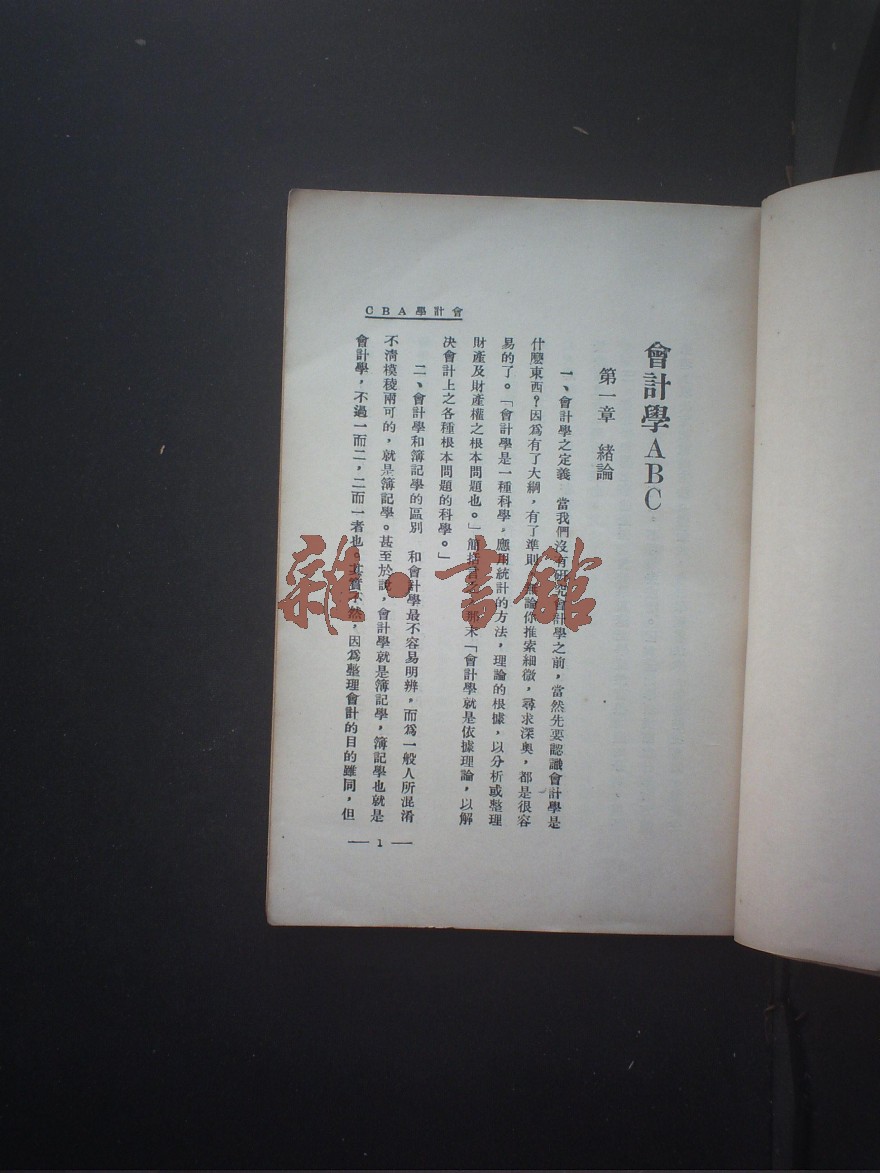 會計學ABC
第一章 緒論
一、會計學之定義 當我們沒有研究會計學之前，當然先要認識會計學是
什麽東西？因爲有了大綱，有了準則，無論你推索細微，尋求深奥，都是很容
易的了。「會計學是一種科學，應用統計的方法，理論的根據，以分析或整理
財產及財產權之根本問題也。」簡括言之，那末「會計學就是依據理論，以解
決會計上之各種根本問題的科學。」
二、會計學和簿記學的區别 和會計學最不容易明辨，而爲一般人所混淆
不清模稜兩可的，就是簿記學。甚至於說，會計學就是簿記學，簿記學也就是
會計學，不過一而二，二而一者也。其實不然，因爲整理會計的目的雖同，但
CBA學計會
— 1 —
雜·書館